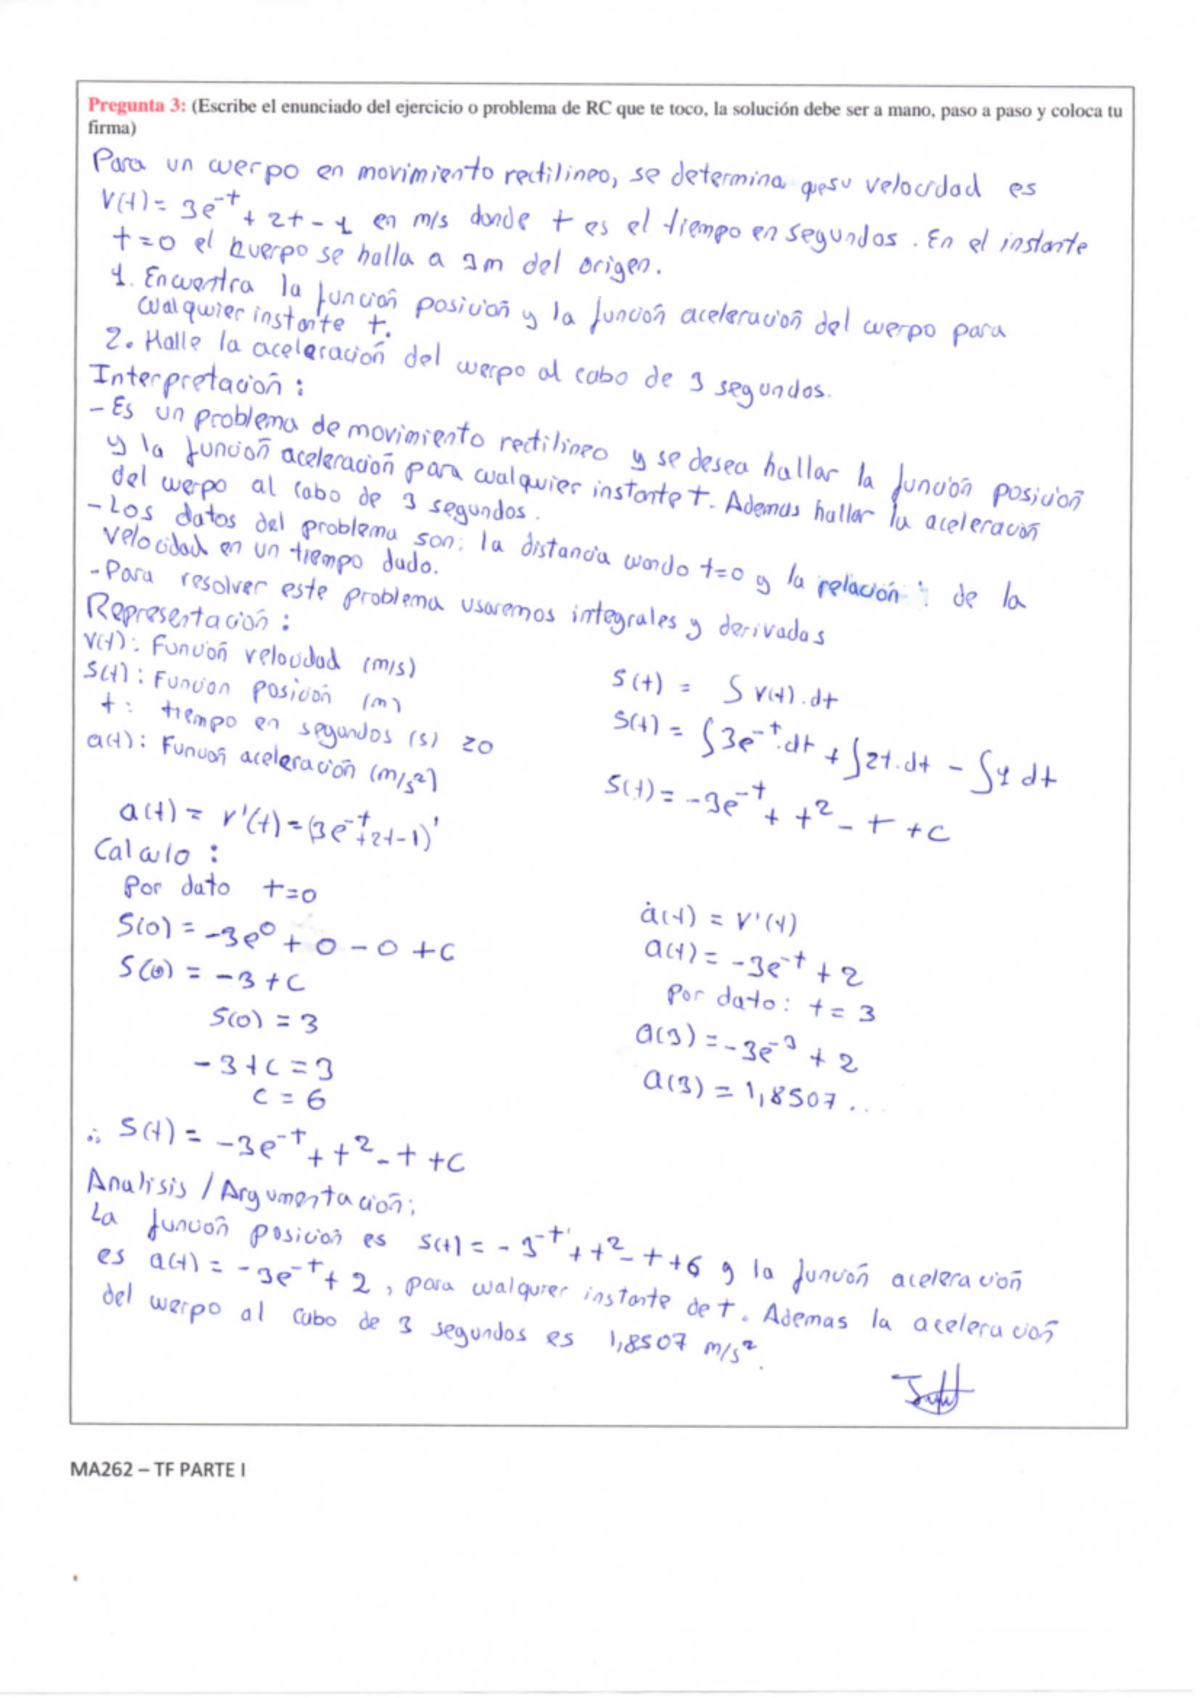 Pregunta 3: (Escribe el enunciado del ejercicio o problema de RC que te toco, la solución debe ser a mano, paso a paso y coloca tu
firma)
Para un cuerpo en movimiento rectilineo, se determina que su velocidad es
V(t) = 3e^-t + 2t - 1 en m/s donde t es el tiempo en segundos. En el instante
t=0 el cuerpo se halla a 3m del origen.
1. Encuentra la función posición y la función aceleración del cuerpo para
cualquier instante t.
2. Halle la aceleración del cuerpo al cabo de 3 segundos.
Interpretación:
- Es un problema de movimiento rectilineo y se desea hallar la función posición
y la función aceleración para cualquier instante t. Ademas hallar la aceleración
del cuerpo al cabo de 3 segundos.
- Los datos del problema son: la distancia cuando t=0 y la relación de la
velocidad en un tiempo dado.
- Para resolver este problema usaremos integrales y derivadas
Representación:
v(t): Función velocidad (m/s)
s(t): Funcion posición (m)
t: tiempo en segundos (s) ≥0
a(t): Función aceleración (m/s²)
a(t) = v'(t) = (3e^-t + 2t - 1)'
s(t) = ∫ v(t).dt
s(t) = ∫3e^-t.dt + ∫2t.dt - ∫1 dt
s(t) = -3e^-t + t² - t + c
Calculo:
Por dato t=0
S(0) = -3e⁰ + 0 - 0 + c
S(0) = -3 + c
S(0) = 3
-3 + c = 3
c = 6
∴ S(t) = -3e^-t + t² - t + c
a(t) = v'(t)
a(t) = -3e^-t + 2
Por dato: t = 3
a(3) = -3e^-3 + 2
a(3) = 1,8507...
Analisis / Argumentación:
La función posición es s(t) = -3^-t + t² - t + 6 y la función aceleración
es a(t) = -3e^-t + 2, para cualquier instante de t. Ademas la aceleración
del cuerpo al cabo de 3 segundos es 1,8507 m/s².
MA262 – TF PARTE I